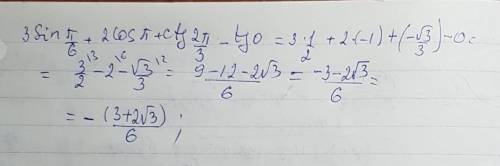 3 Sin π/6 + 2 cos π + ctg 2π/3 - tg 0 = 3·1/2 + 2·(-1) + (-√3/3) - 0 =
= 3/2 \3 - 2 \6 - √3/3 \2 = (9 - 12 - 2√3)/6 = (-3 - 2√3)/6 =
= - (3 + 2√3)/6 ;